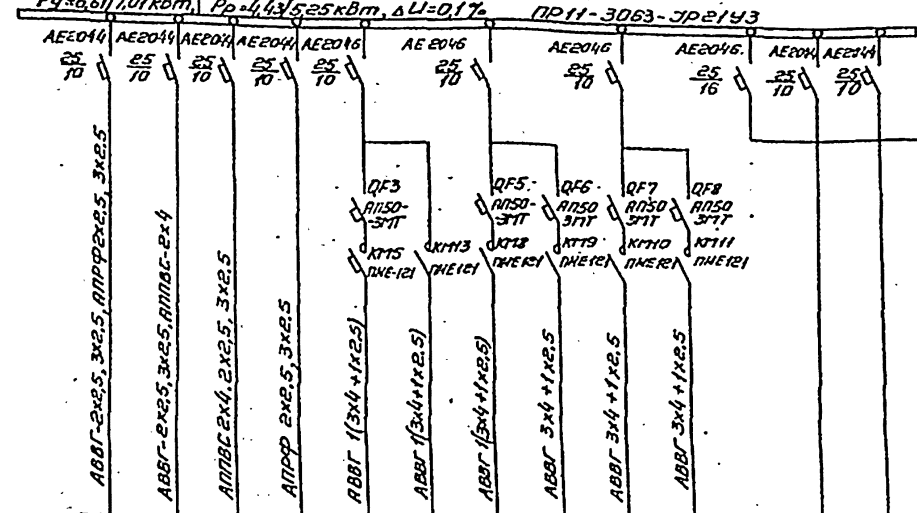 Pр=4,43/5,25кВт, ΔU=0,1%
ПР11-3063-УР21У3
АЕ2044 АЕ2044 АЕ2044 АЕ2044 АЕ2046 АЕ2046 АЕ2046 АЕ2046. АЕ2044 АЕ2044
25/10 25/10 25/10 25/10 25/10 25/10 25/10 25/16 25/10 25/10
QF3 QF5 QF6 QF7 QF8
АП50-3МТ АП50-3МТ АП50 3МТ АП50 3МТ АП50 3МТ
КМ5 КМ13 КМ8 КМ9 КМ10 КМ11
ПМЕ-121 ПМЕ121 ПМЕ121 ПМЕ121 ПМЕ121 ПМЕ121
АВВГ-2х2,5, 3х2.5, АПРФ2х2.5, 3х2.5
АВВГ-2х2,5, 3х2,5, АППВС-2х4
АППВС 2х4, 2х2,5, 3х2.5
АПРФ 2х2.5, 3х2.5
АВВГ 1(3х4+1х2,5)
АВВГ 1(3х4+1х2.5)
АВВГ 1(3х4+1х2.5)
АВВГ 3х4+1х2.5
АВВГ 3х4+1х2.5
АВВГ 3х4+1х2.5